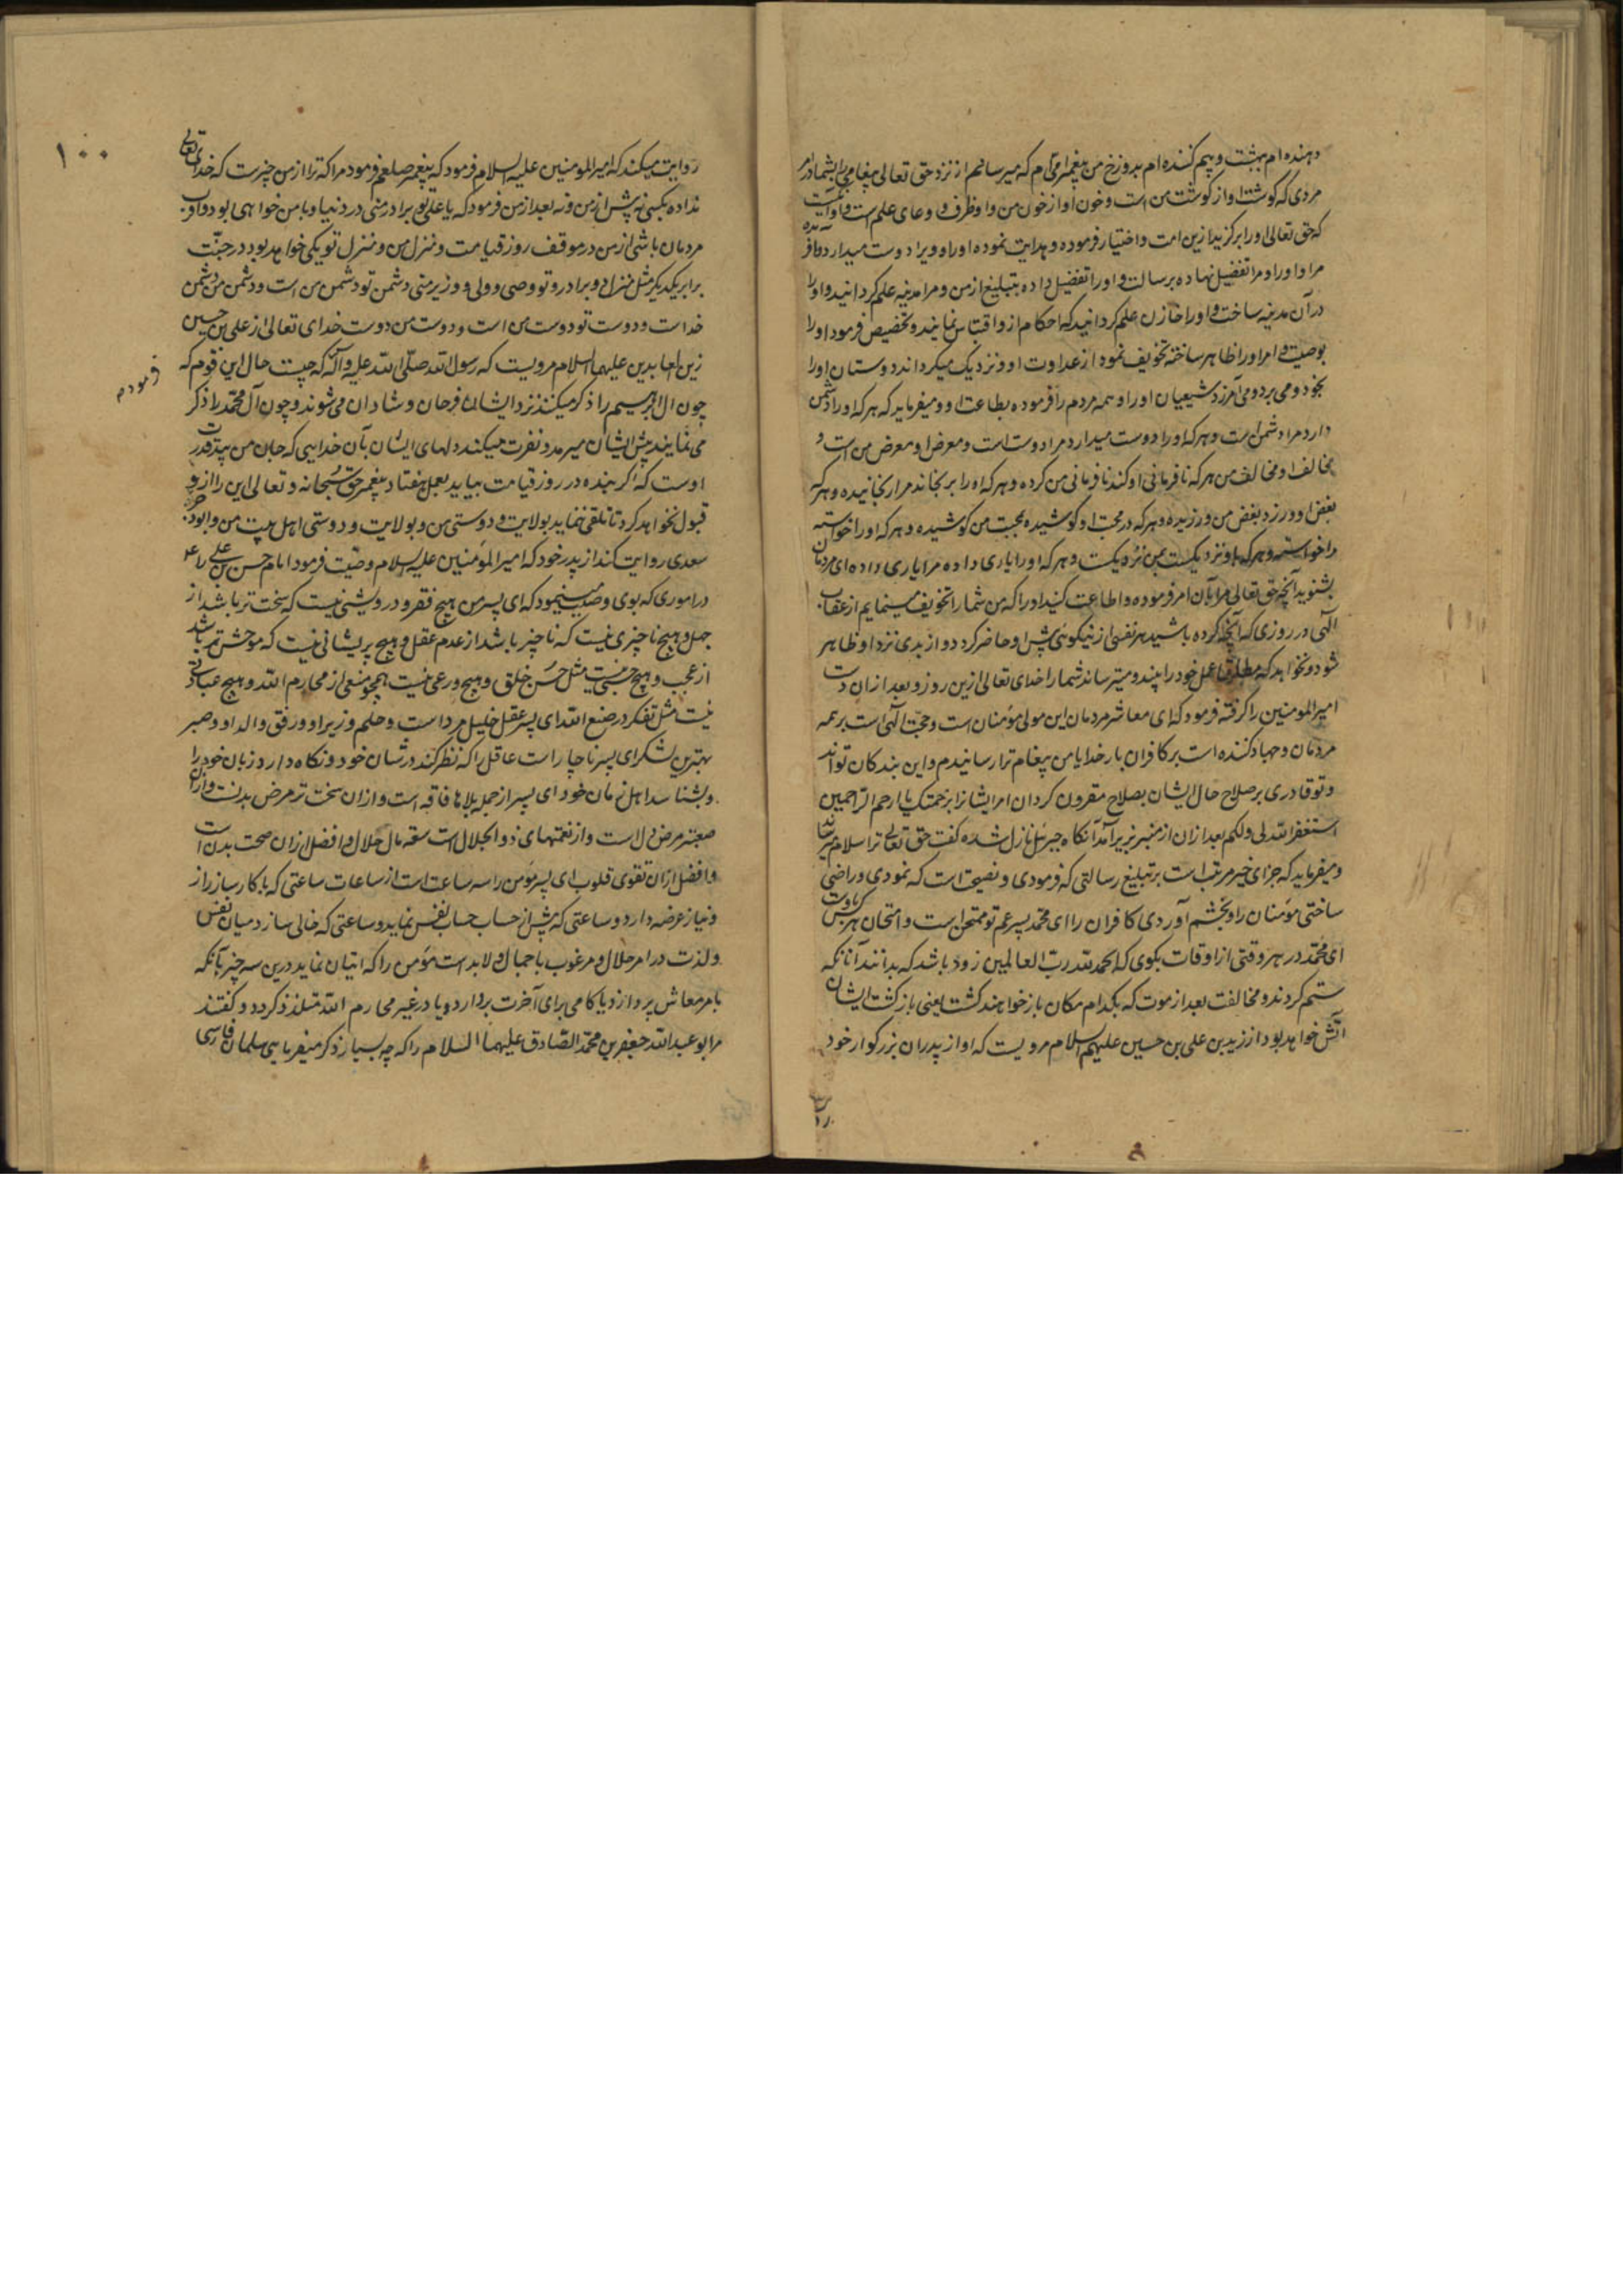 دهنده‌ام ببهشت و بیم کننده‌ام بدوزخ من پیغمبر امی‌ام که میرسانم از نزد حق تعالی پیغام
مردی که گوشت او از گوشت من است و خون او از خون من و او ظرف و وعای علم است و اوآنست
که حق تعالی اورا برگزید ازین امت و اختیار فرموده و هدایت نموده اورا و ویرا دوست میدارد و آفریده
مرا و اورا و مرا تفضیل نهاده برسالت و اورا تفضیل داده بتبلیغ از من و مرا مدینه علم گردانید و اورا
در آن مدینه ساخت و اورا خازن علم گردانید که احکام ازو اقتباس نمایند و تخصیص فرمود اورا
بوصیت و امر اورا ظاهر ساخته تخویف نمود از عداوت او و نزدیک میگرداند دوستان اورا
بخود و می‌آمرزد شیعیان اورا و همه مردم را فرموده بطاعت او و میفرماید که هر که اورا دشمن
دارد مرا دشمن است و هر که اورا دوست میدارد مرا دوست است و معرض او معرض من است و
مخالف او مخالف من هر که نافرمانی او کند نافرمانی من کرده و هر که او را برنجاند مرا رنجانیده و هر که
بغض او ورزد بغض من ورزیده و هر که در محبت او کوشیده بمحبت من کوشیده و هر که اورا خواسته
مرا خواسته و هر که باو نزدیکست بمن نزدیکست و هر که اورا یاری داده مرا یاری داده ای مردمان
بشنوید آنچه حق تعالی مرا بآن امر فرموده و اطاعت کنید اورا که من شما را تخویف مینمایم از عقاب
الهی در روزی که آنچه کرده باشید هر نفسی از نیکوئی پیش او حاضر گردد و از بدی نزد او ظاهر
شود و نخواهد که مطلقا عمل خود را بیند و میترساند شما را خدای تعالی ازین روز و بعد ازان دست
امیر المومنین را گرفته فرمود که ای معاشر مردمان این مولی مؤمنان است و حجت الهی است بر همه
مردمان و جهاد کننده است بر کافران بار خدایا من پیغام ترا رسانیدم و این بندگان تواند
و تو قادری بر صلاح حال ایشان بصلاح مقرون گردان امر ایشانرا برحمتک یا ارحم الراحمین
استغفر الله لی و لکم بعد ازان از منبر بزیر آمد آنگاه جبرئیل نازل شده گفت حق تعالی ترا سلام میرساند
و میفرماید که جزای خیر مرتب است بر تبلیغ رسالتی که فرمودی و نصیحت است که نمودی و راضی
ساختی مؤمنان را و بخشم آوردی کافران را ای محمد پسر عم تو ممتحن است و امتحان هر کس باوست
ای محمد در هر وقتی از اوقات بگوی که الحمد لله رب العالمین زود باشد که بدانند آنانکه
ستم کردند و مخالفت بعد از موت که بکدام مکان باز خواهند گشت یعنی بازگشت ایشان
آتش خواهد بود از زید بن علی بن حسین علیهم السلام مرویست که او از پدران بزرگوار خود
۱۰۰
روایت میکند که امیر المومنین علیه السلام فرمود که پیغمبر صلعم فرمود مرا که ترا از من چیزیست که خدای تعالی
نداده بکسی نه پیش از من و نه بعد از من فرمود که یا علی تو برادر منی در دنیا و با من خواهی بود و اقرب
مردمان باشی از من در موقف روز قیامت و منزل من و منزل تو یکی خواهد بود در جنت
برابر یکدیگر مثل منزل دو برادر و تو وصی و ولی و وزیر منی دشمن تو دشمن من است و دشمن من دشمن
خداست و دوست تو دوست من است و دوست من دوست خدای تعالی از علی بن حسین
زین العابدین علیهما السلام مرویست که رسول الله صلی الله علیه وآله که چیست حال این قوم که
فرمودم
چون آل ابرهیم را ذکر میکنند نزد ایشان فرحان و شادان می‌شوند و چون آل محمد را ذکر
می نمایند پیش ایشان میرمد و نفرت میکند دلهای ایشان بآن خدایی که جان من بید قدرت
اوست که اگر بنده در روز قیامت بیاید بعمل هفتاد پیغمبر حق سبحانه و تعالی این را ازو
قبول نخواهد کرد تا تلقی ننماید بولایت و دوستی من و بولایت و دوستی اهل بیت من و ابو
سعدی روایت کند از پدر خود که امیر المؤمنین علیه السلام وصیت فرمود امام حسن بن علی را ع
در اموری که بوی وصیت مینمود که ای پسر من هیچ فقر و درویشی نیست که سخت تر باشد از
جهل و هیچ ناچیزی نیست که ناچیز باشد از عدم عقل و هیچ پریشانی نیست که موحش تر باشد
از عجب و هیچ حسبی نیست مثل حسن خلق و هیچ ورعی نیست همچو منعی از محارم الله و هیچ عبادتی
نیست مثل تفکر در صنع الله ای پسر عقل خلیل مرد است و حلم وزیر او و رفق والد او و صبر
بهترین لشکر ای پسر ناچار است عاقل را که نظر کند در شان خود و نگاه دارد زبان خود را
و بشناسد اهل زمان خود ای پسر از جمله بلاها فاقه است و ازان سخت تر مرض بدنست و ازان
صعبتر مرض دل است و از نعمتهای ذو الجلال است سعه مال حلال و افضل ازان صحت بدن است
و افضل ازان تقوی قلوب ای پسر مؤمن را سه ساعت است از ساعات ساعتی که با کارساز راز
و نیاز عرضه دارد و ساعتی که پیش از حساب حساب نفس نماید و ساعتی که خالی سازد میان نفس
و لذت در امر حلال و مرغوب با جمال و لا بد است مؤمن را که اتیان نماید درین سه چیز یا آنکه
بامر معاش پردازد یا کامی برای آخرت بردارد و یا در غیر محارم الله متلذذ گردد و گفتند
مر ابو عبدالله جعفر بن محمد الصادق علیهما السلام را که چه بسیار ذکر میفرمایی سلمان فارسی